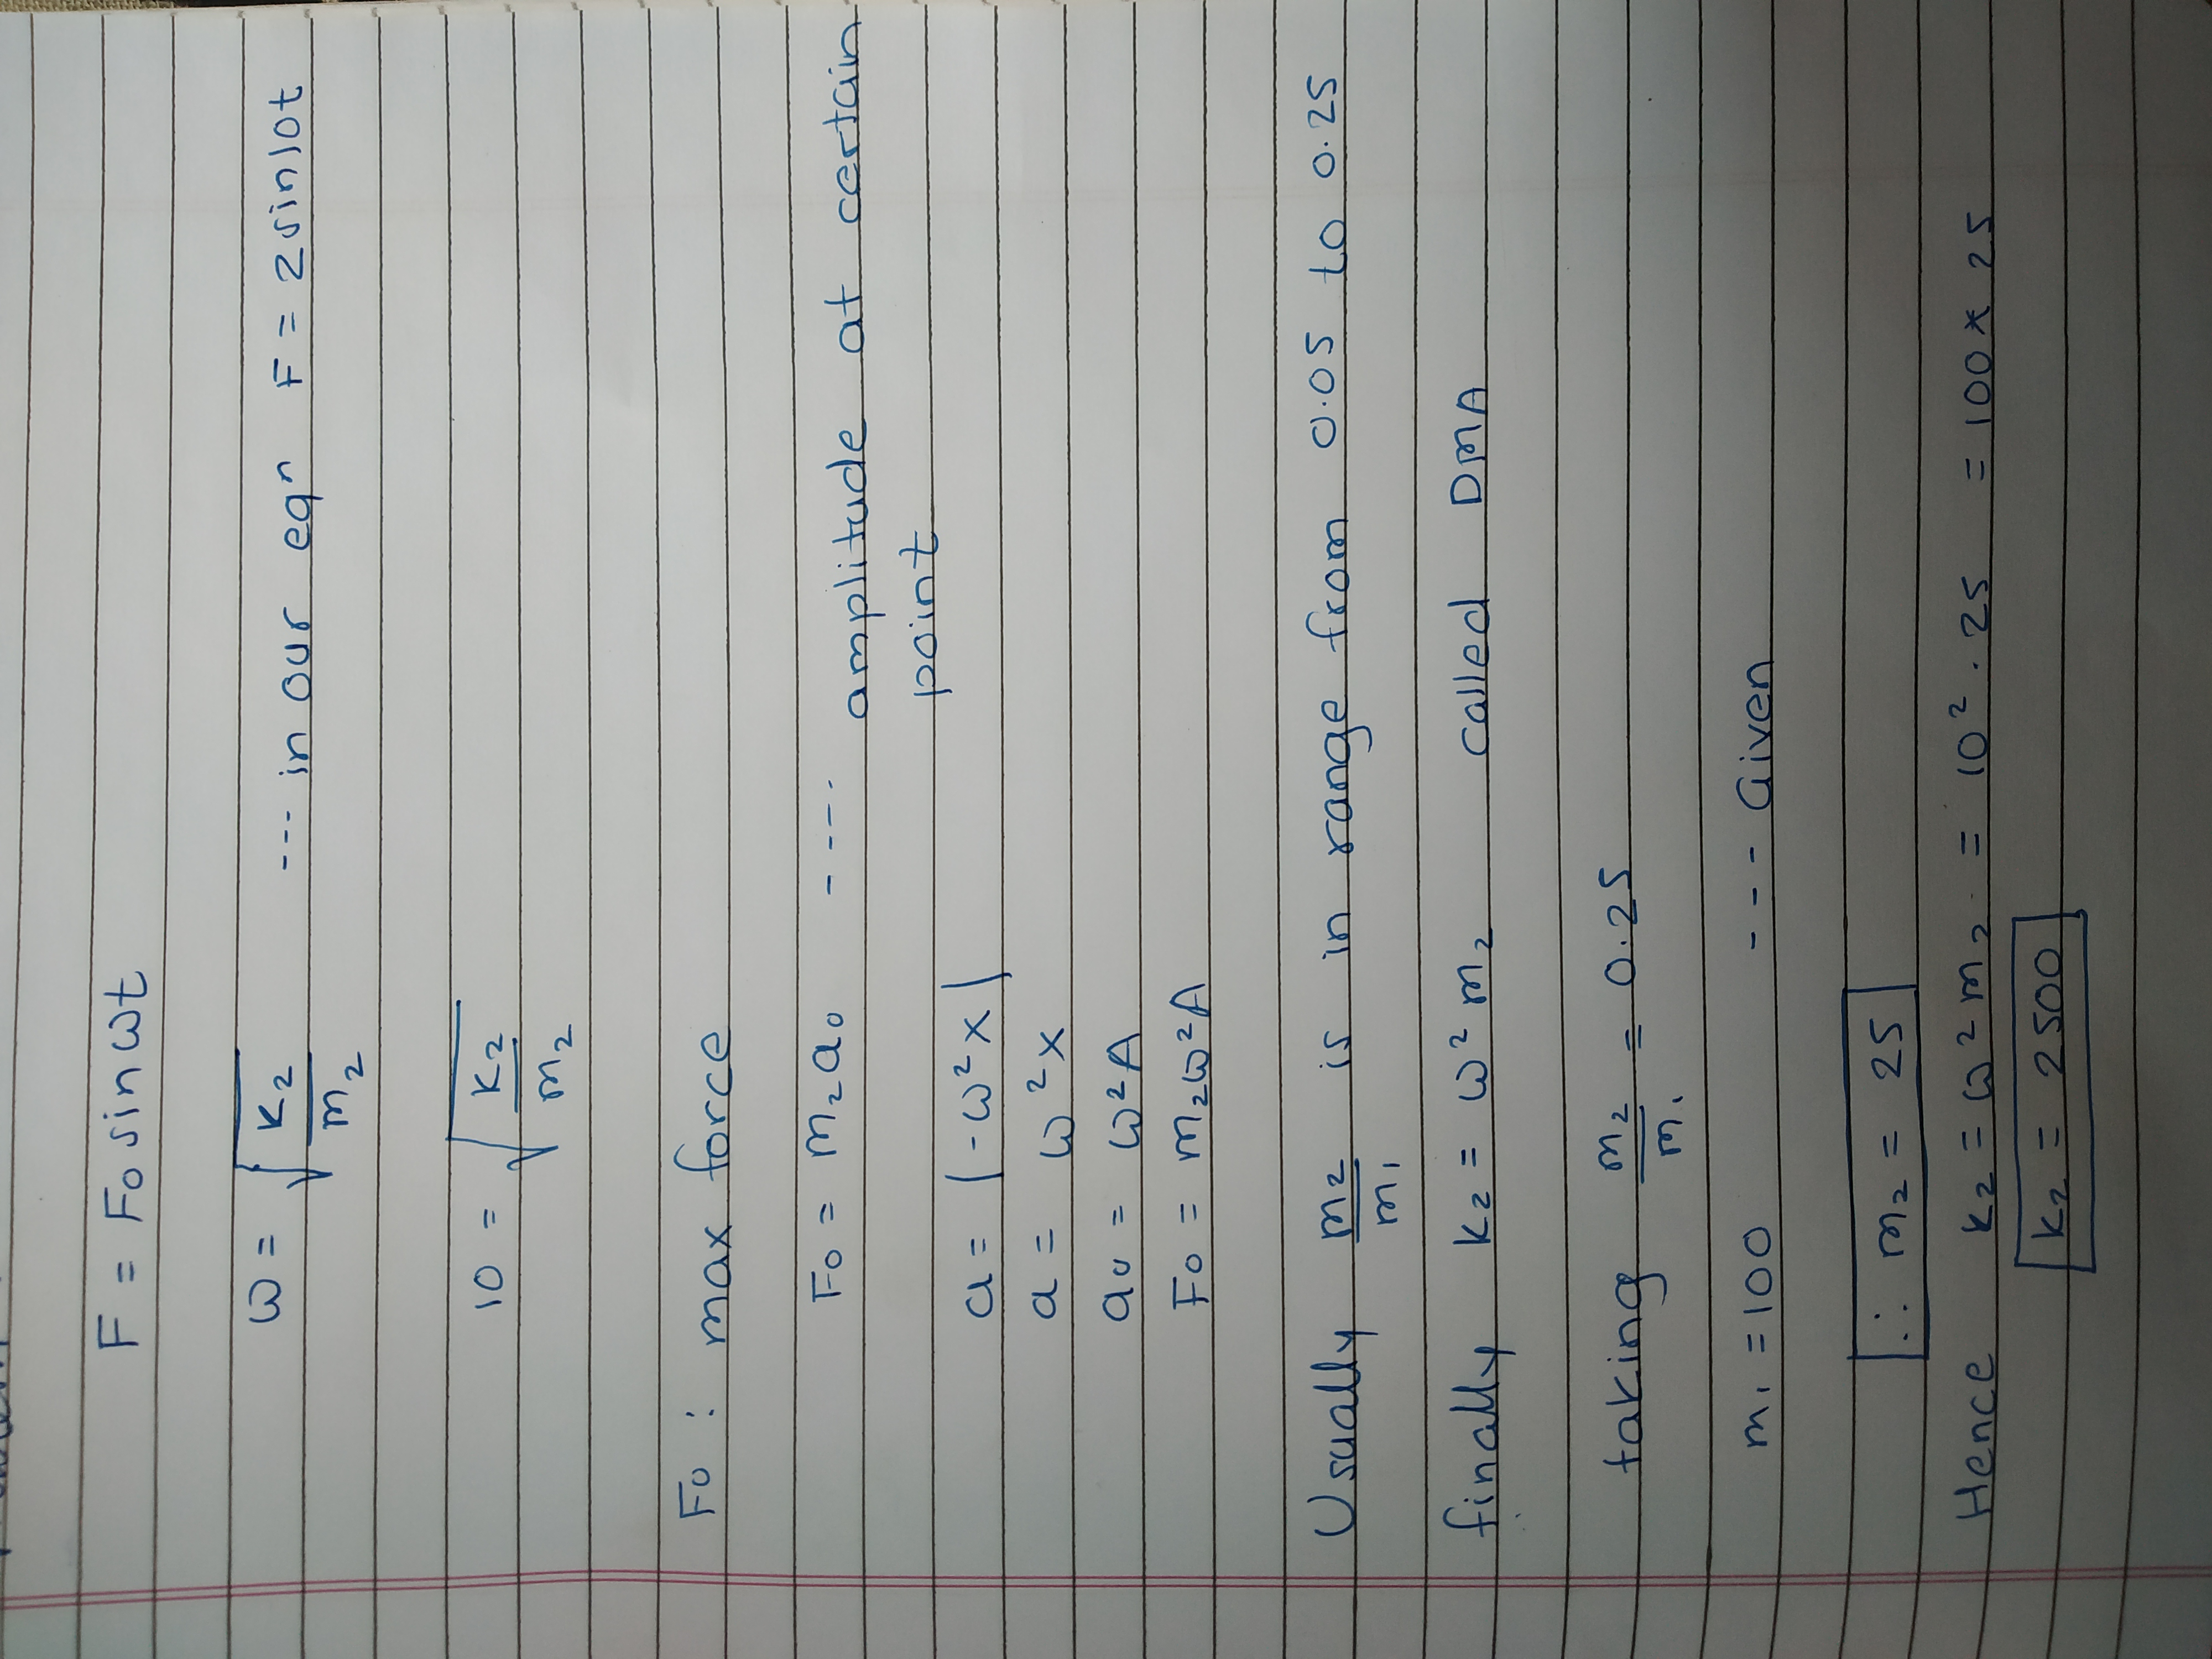 F = F0 sin ωt
ω = √(k2/m2) --- in our eqn F = 2 sin10t
10 = √(k2/m2)
F0 : max force
F0 = m2a0 ---- amplitude at certain
point
a = |-ω²x|
a = ω²x
a0 = ω²A
F0 = m2ω²A
Usually m2/m1 is in range from 0.05 to 0.25
finally k2 = ω² m2 called DMA
taking m2/m1 = 0.25
m1 = 100 --- Given
∴ m2 = 25
Hence k2 = ω²m2 = 10² . 25 = 100 * 25
k2 = 2500